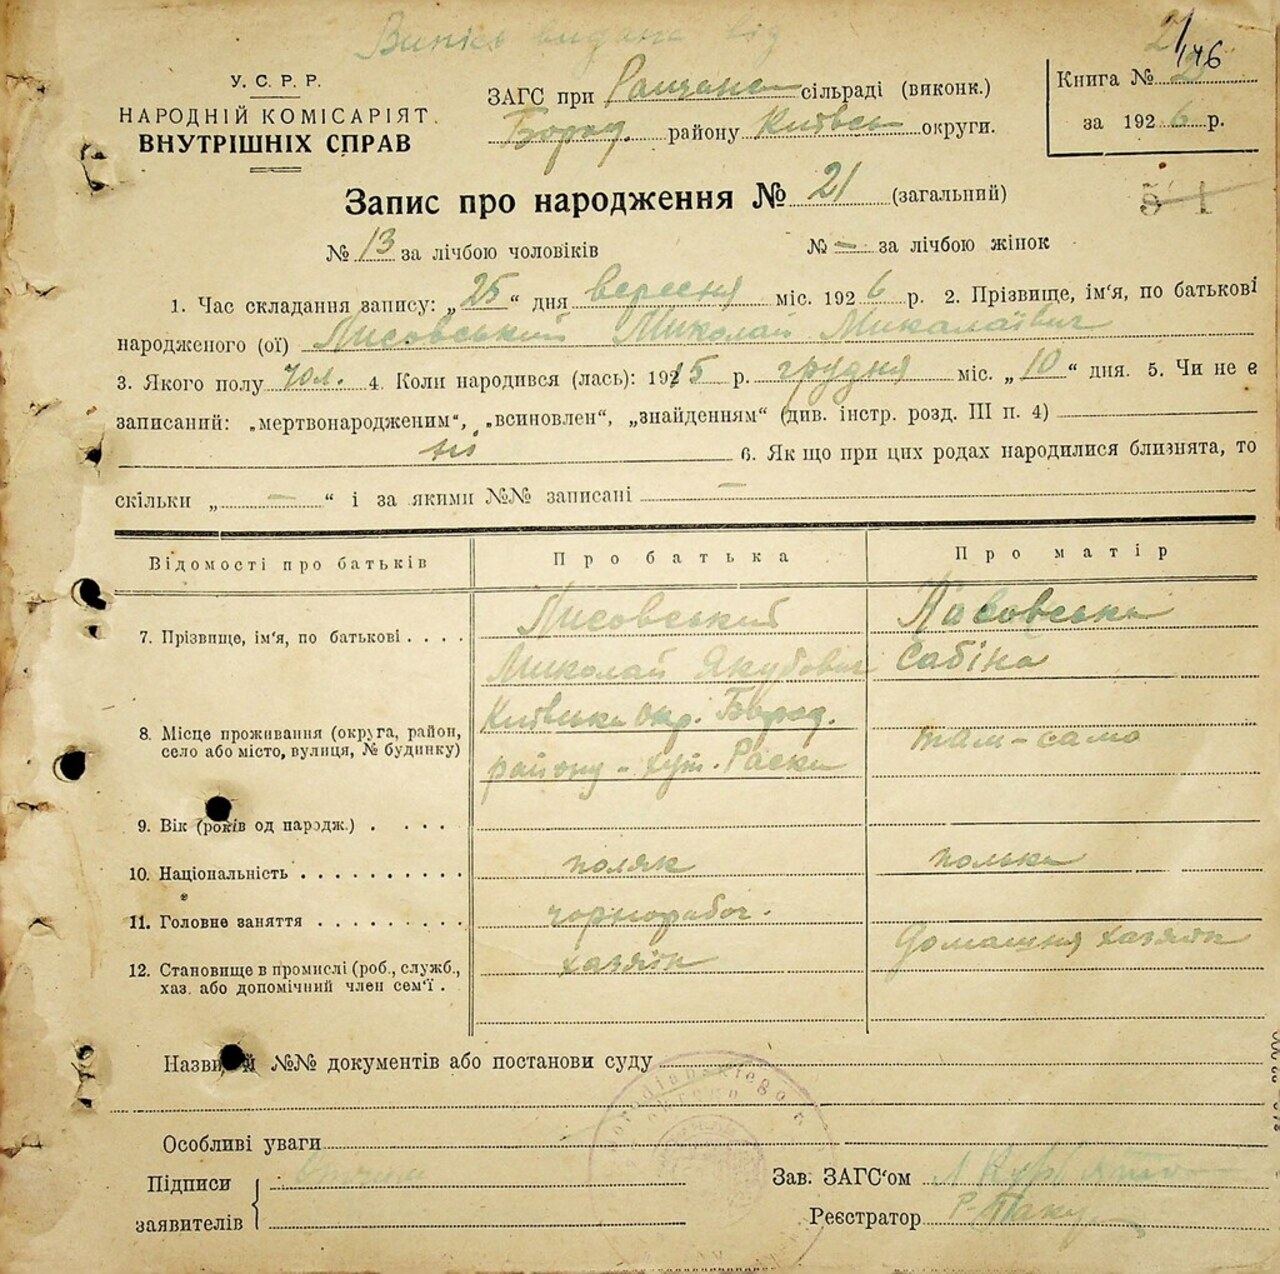 Випись видана від
21
146
У. С. Р. Р.
НАРОДНІЙ КОМІСАРІЯТ
ВНУТРІШНІХ СПРАВ
ЗАГС при сільраді (виконк.)
Бород. району Київськ округи.
Книга № 2
за 1926 р.
Запис про народження № 21 (загальний)
5 1
№ 13 за лічбою чоловіків № — за лічбою жінок
1. Час складання запису: „25“ дня вересня міс. 1926 р. 2. Прізвище, ім'я, по батькові
народженого (ої) Лисовський Миколай Миколаївич
3. Якого полу чол. 4. Коли народився (лась): 1915 р. грудня міс. „10“ дня. 5. Чи не є
записаний: „мертвонародженим“, „всиновлен“, „знайденням“ (див. інстр. розд. III п. 4)
ні 6. Як що при цих родах народилися близнята, то
скільки „ — “ і за якими №№ записані —
Відомості про батьків Про батька Про матір
7. Прізвище, ім'я, по батькові . . . . Лисовський
Миколай Якубович Сабіна
8. Місце проживання (округа, район, село або місто, вулиця, № будинку) Київська окр. Бород. там-само
району - хут. Раски
9. Вік (років од народж.) . . . .
10. Національність . . . . . . . . . . поляк полька
11. Головне заняття . . . . . . . . . чорнороboч.
12. Становище в промислі (роб., служб., хазяїн Домашня хазяйк
хаз. або допомічний член сем'ї .
Назви й №№ документів або постанови суду
Особливі уваги
Підписи
заявителів
Зав. ЗАГС'ом
Реєстратор